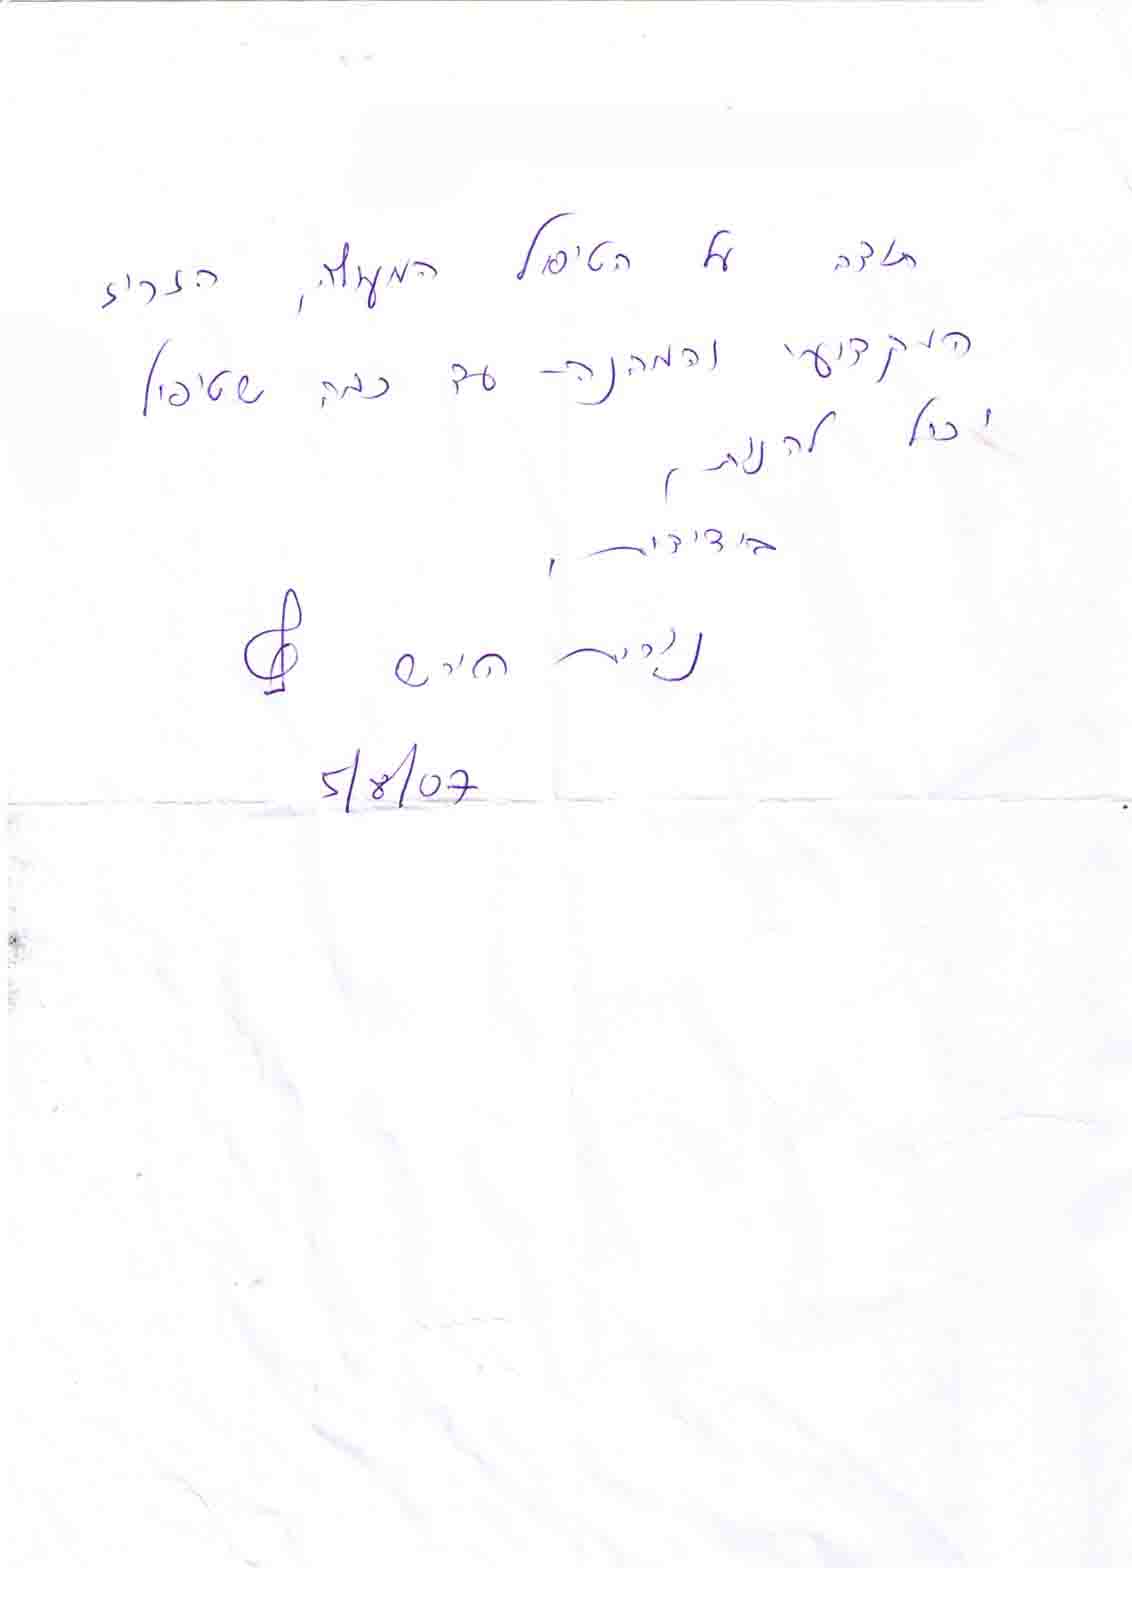 תודה על הטיפול המעולה, הזריז
המקצועי והמהנה - עד כמה שטיפול
יכול להנות,
בידידות,
נורית הירש
5/8/07